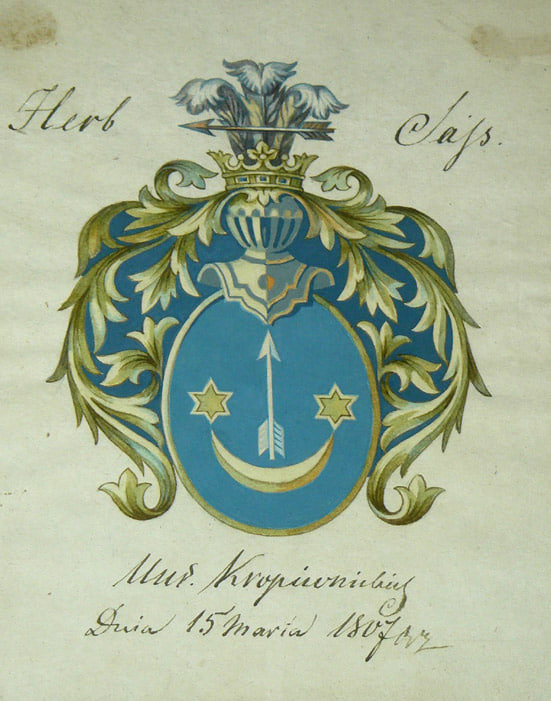 Herb Sass.
Urod. Kropiwnickich
Dnia 15 Maria 1807